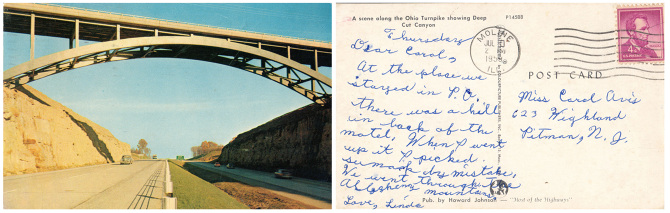 A scene along the Ohio Turnpike showing Deep
Cut Canyon
P14588
Thursday
Dear Carol,
At the place we
stayed in P.O.
there was a hill
in back of the
motel. When I went
up it I picked
sumack by mistake,
We went through the
Alleghany mountains,
Love, Linda
MOLINE
JUL
2
PM
195
ILL.
4¢
POST CARD
Miss Carol Avis
623 Highland
Pitman, N. J.
Pub. by Howard Johnson — "Host of the Highways"